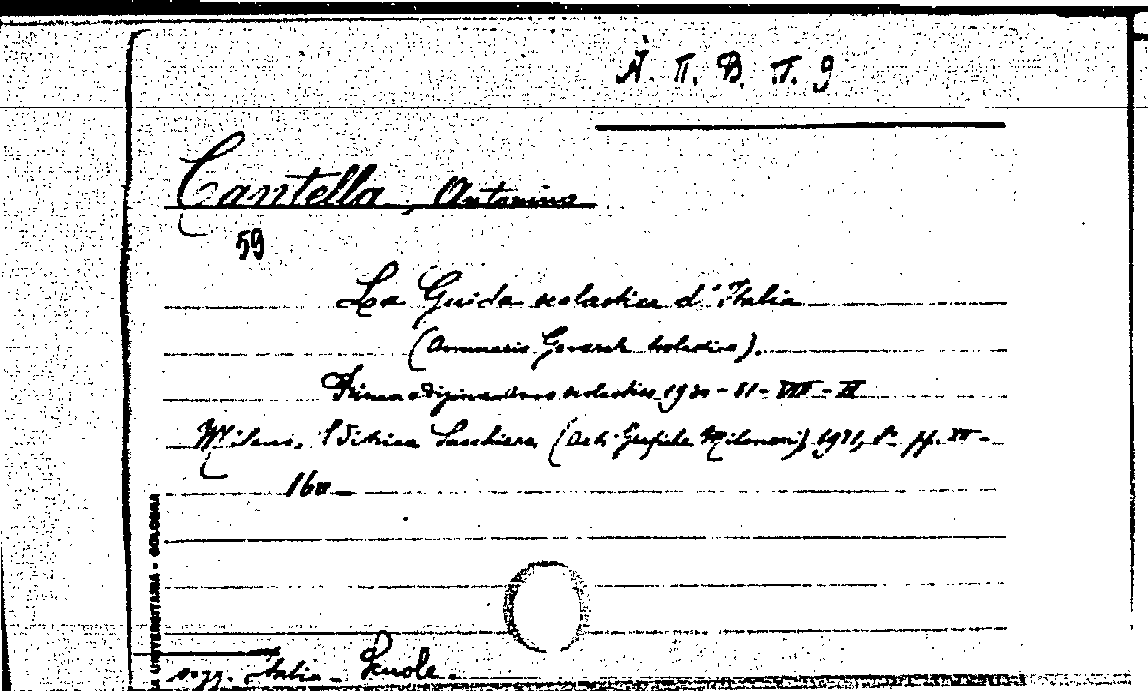 A. II. B. II. 9
Cantella, Antonino
59
La Guida scolastica d'Italia
(Annuario Generale scolastico).
Prima edizione anno scolastico 1930-31-VIII-IX
Milano, Editrice (Arti Grafiche Milanesi), 1931, 8° pp. XV-
160
A UNIVERSITARIA - BOLOGNA
sogg. Italia - Scuole.